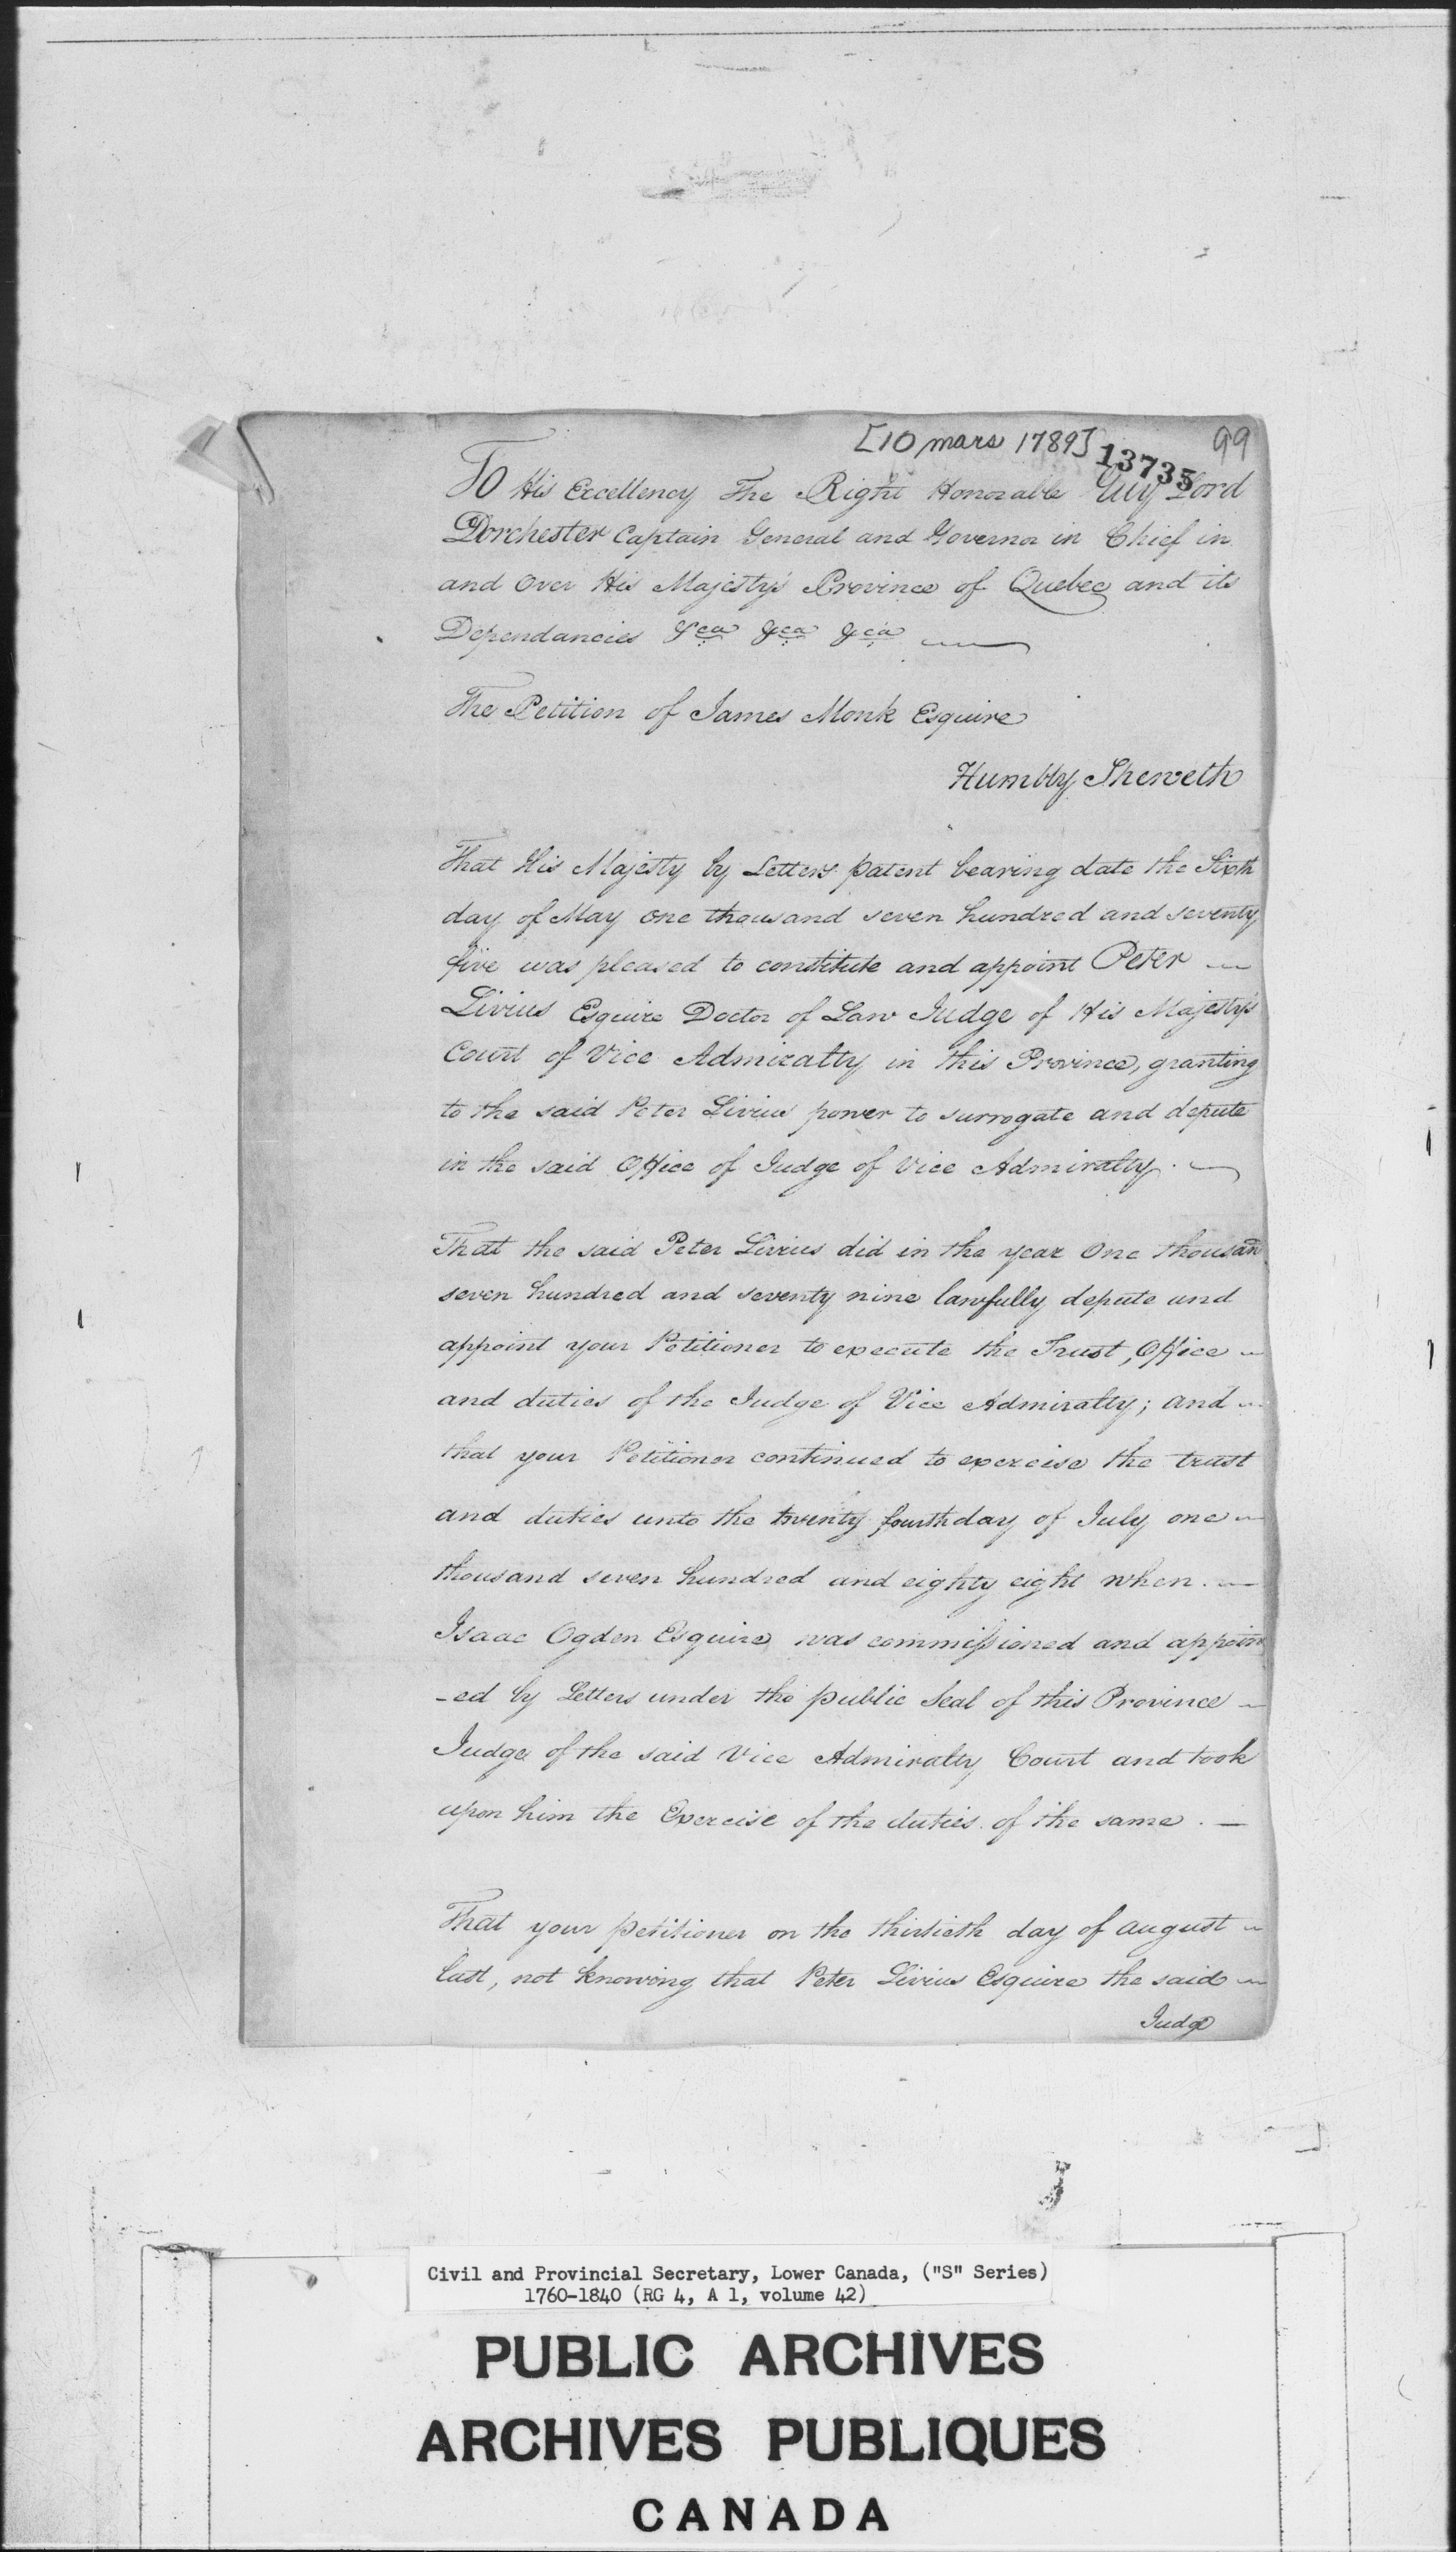 [10 mars 1789] 13735 99
To His Excellency The Right Honorable Guy Lord
Dorchester Captain General and Governor in Chief in
and Over His Majesty's Province of Quebec and its
Dependancies &ca &ca &ca
The Petition of James Monk Esquire
Humbly Sheweth
That His Majesty by Letters patent bearing date the Sixth
day of May one thousand seven hundred and seventy
five was pleased to constitute and appoint Peter
Livius Esquire Doctor of Law Judge of His Majesty's
Court of Vice Admiralty in this Province, granting
to the said Peter Livius power to surrogate and depute
in the said Office of Judge of Vice Admiralty.
That the said Peter Livius did in the year One thousand
seven hundred and seventy nine lawfully depute and
appoint your Petitioner to execute the Trust, Office
and duties of the Judge of Vice Admiralty; and
that your Petitioner continued to exercise the trust
and duties unto the twenty fourth day of July one
thousand seven hundred and eighty eight when.
Isaac Ogden Esquire was commissioned and appoint
-ed by Letters under the public Seal of this Province
Judge of the said Vice Admiralty Court and took
upon him the Exercise of the duties of the same. —
That your petitioner on the thirtieth day of august
last, not knowing that Peter Livius Esquire the said
Judge
Civil and Provincial Secretary, Lower Canada, ("S" Series)
1760-1840 (RG 4, A 1, volume 42)
PUBLIC ARCHIVES
ARCHIVES PUBLIQUES
CANADA